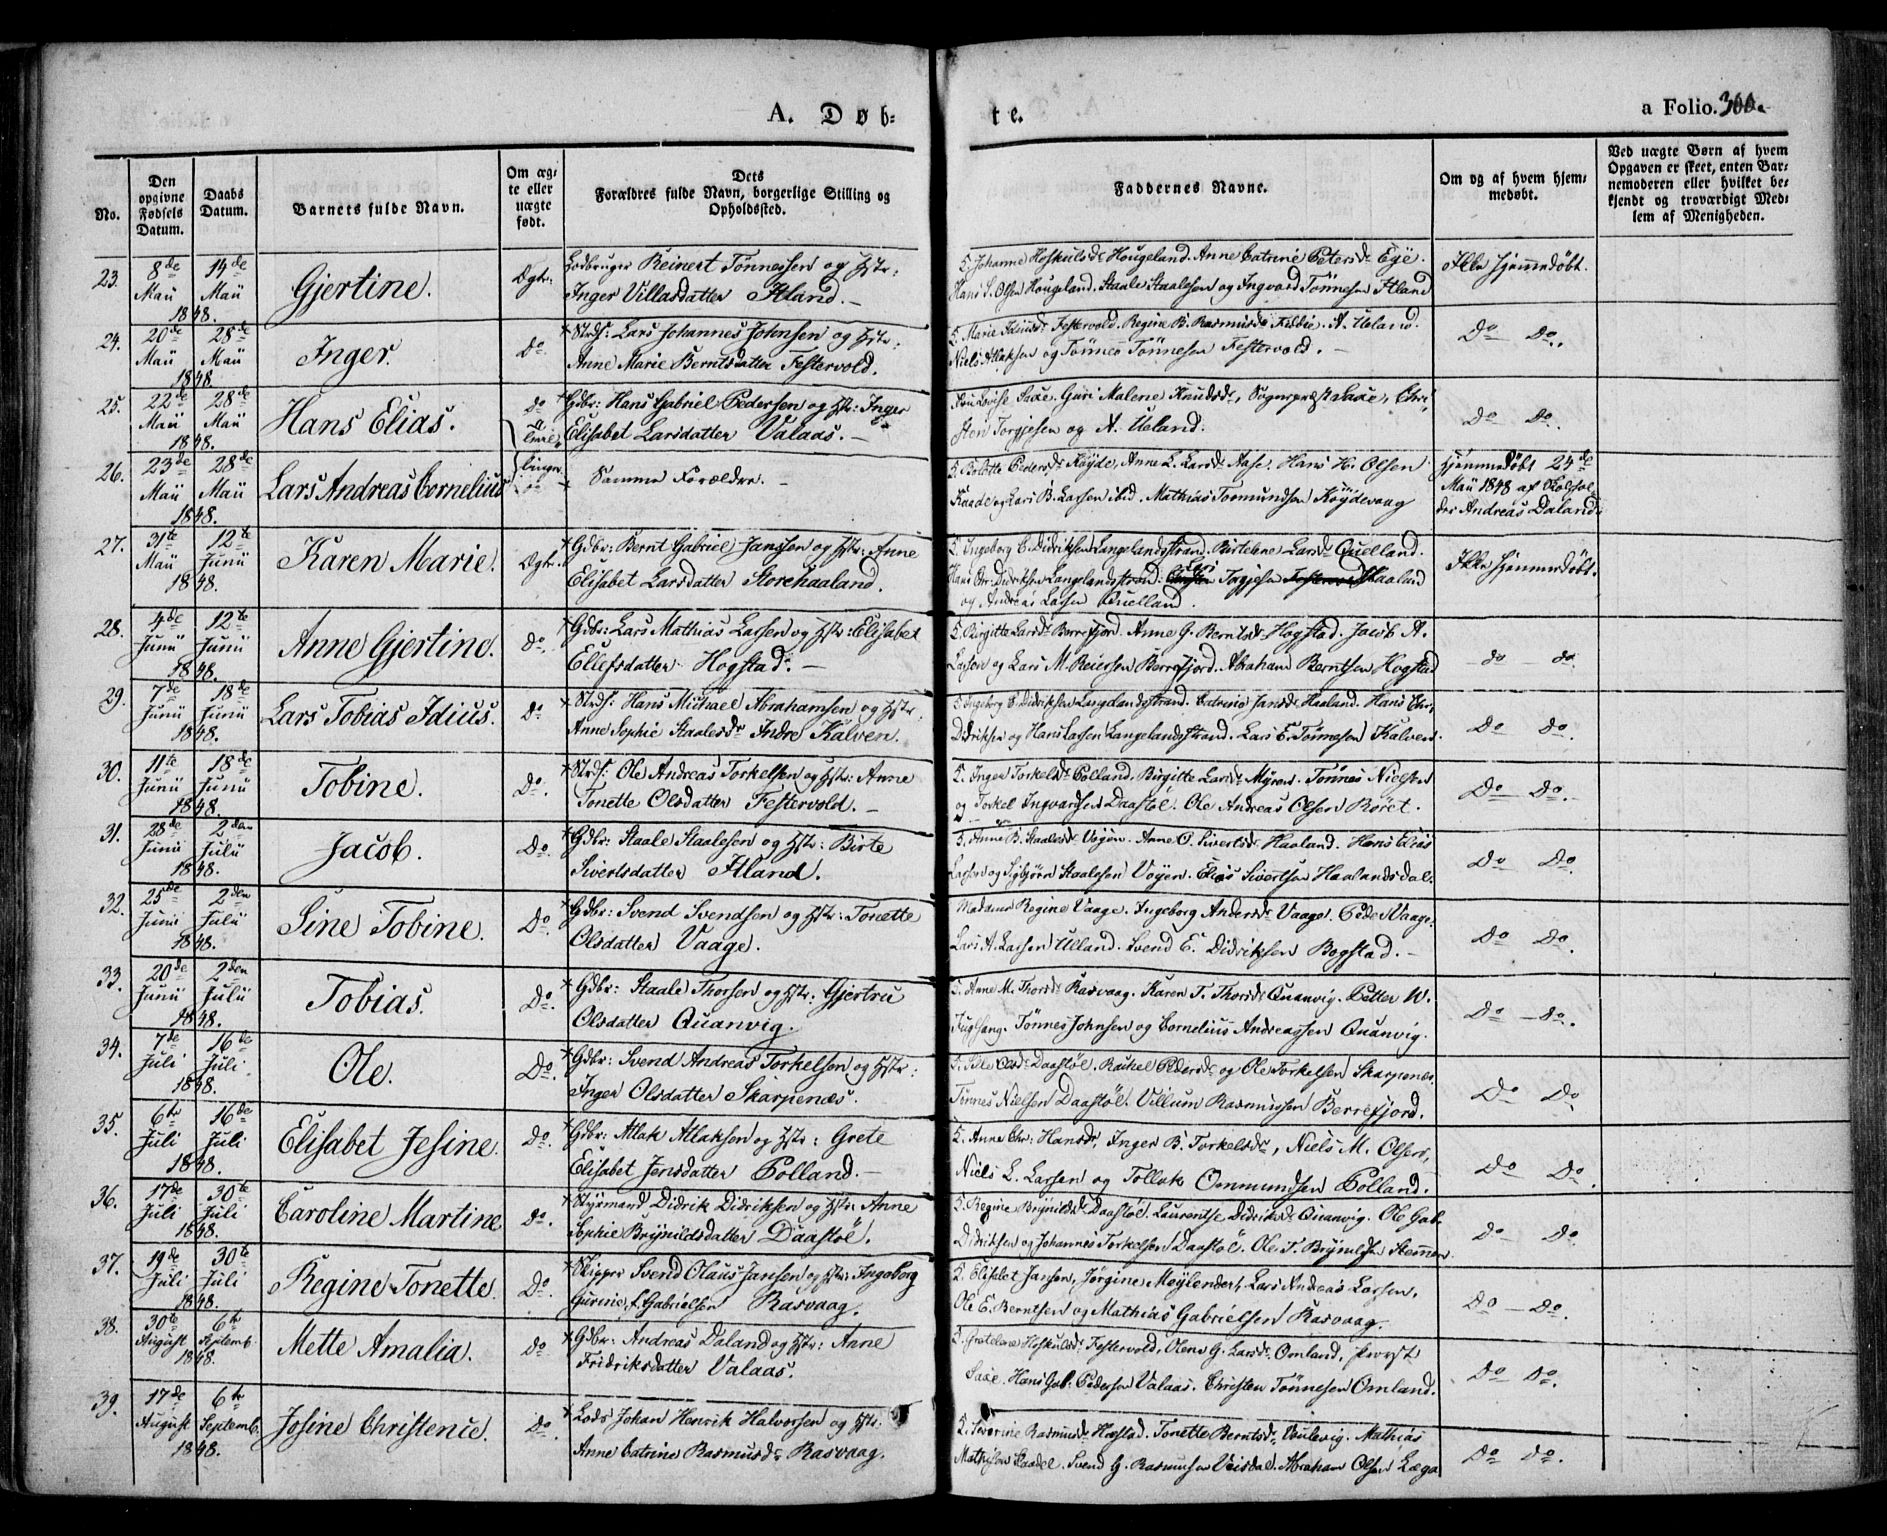 A. Døb-
te.
a Folio. 300a
No.
Den opgivne Fødsels Datum.
Daabs Datum.
Barnets fulde Navn.
Om ægte eller uægte født.
Dets Forældres fulde Navn, borgerlige Stilling og Opholdssted.
Faddernes Navne.
Om og af hvem hjemmedøbt.
Ved uægte Børn af hvem Opgaven er skeet, enten Barnemoderen eller hvilket bekjendt og troværdigt Medlem af Menigheden.
23. 8de Maii 1848. 14de Maii Gjertine. Ægte.
Gdbruger Reinert Tönnessen og Hstr:
Inger Villasdatter Haland.
Johanne Hoskulsdr Hougeland. Anne Catrine Petersdr Eÿe.
Hans S. Olsen Hougeland. Staale Staalesen og Ingvard Tönnesen Haland
Ikke hjemmedøbt.
24. 20de Maii 1848 28de Maii Inger. Do
Strds: Lars Johannes Johnsen og Hstr:
Anne Marie Berntsdatter Festervold.
Marie Festervold. Regine B. Rasmusdr A. Ueland.
Niels Atlaksen og Tönnes Tönnesen Festervold.
Do Do.
25. 22de Maii 1848. 28de Maii Hans Elias. Do
Gdbr: Hans Gabriel Pedersen og Hstr: Inger
Elisabet Larsdatter Valaas.
Lovise Saxe. Guri Malene Knudsdr, Sognepræst Saxe, Chri-
sten Torgjesen og A. Ueland.
Do Do.
26. 23de Maii 1848. 28de Maii Lars Andreas Cornelius Tvillinger
Samme Forældre.
Pedersdr Köÿde, Anne L. Larsdr Aase. Hans H. Olsen
Kaade og Lars B. Larsen ibid. Mathias Tormundsen Köÿdevaag
hjemmedøbt 24de
Maii 1848 af Skolehol-
der Andreas Daland.
27. 31te Maii 1848. 12te Junii Karen Marie. Ægte.
Gdbr: Bernt Gabriel Janssen og Hstr: Anne
Elisabet Larsdatter Storehaaland.
Ingeborg C. Didriksen Langelandsstrand. Birtelene Larsdr Quelland.
Hans Chr: Didriksen Langelandsstrand: Lars Torgjesen Haaland
og Andreas Larsen Quelland.
Ikke hjemmedøbt.
28. 4de Junii 1848. 12te Junii Anne Gjertine. do.
Gdbr: Lars Mathias Larsen og Hstr: Elisabet
Ellefsdatter Hogstad.
Birgitte Larsdr Berrefjord. Anne G. Berntsdr Hogstad. Jacob A.
Larsen og Lars M. Reiersen Berrefjord. Abraham Berntsen Hogstad
do do.
29. 7de Junii 1848. 18de Junii Lars Tobias Idius. Do
Strds: Hans Michael Abrahamsen og Hstr.
Anne Sophie Staalesdr Indre Kalven.
Ingeborg C. Didriksen Langelandsstrand. Catrine Jansdr Haaland. Hans Chr:
Didriksen og Hans Larsen Langelandsstrand. Lars E. Tönnesen Kalven.
Do Do.
30. 11te Junii 1848. 18de Junii Tobine. Do.
Strds: Ole Andreas Torkelsen og Hstr: Anne
Tonette Olsdatter Festervold.
Inger Torkelsdr Polland. Birgitte Larsdr Myren. Tönnes Nielsen
og Torkel Ingvardsen Daastöl. Ole Andreas Olsen Röret.
Do Do.
31. 28de Junii 1848. 2den Julii Jacob. Do.
Gdbr: Staale Staalesen og Hstr: Birte
Sivertsdatter Haland.
Anne B. Staalesdr Vogen. Anne O. Sivertsdr Haaland. Hans Elias
Larsen og Sigbjörn Staalesen Voyen. Elias Sivertsen Haalandsdal.
Do Do.
32. 25de Junii 1848. 2den Julii Sine Tobine. Do.
Gdbr: Svend Svendsen og Hstr: Tonette
Olsdatter Vaage.
Madame Regine Vaage. Ingeborg Andersdr Vaage. Peder Vaage.
Lars A. Larsen Ulland. Svend E. Didriksen Bogstad.
Do Do.
33. 20de Junii 1848. 2den Julii Tobias. Do.
Gdbr: Staale Thorsen og Hstr. Gjertru
Olsdatter Quanvig.
Anne M. Thorsdr Rasvaag. Karen T. Thorsdr Quanvig. Petter W.
Fuglsang. Tönnes Johnsen og Cornelius Andreassen Quanvig.
Do Do.
34. 7de Juli 1848. 16de Juli Ole. Do.
Gdbr: Svend Andreas Torkelsen og Hstr:
Inger Olsdatter Skarpenæs.
Olsdr Daastöl. Rachel Pedersdr og Ole Torkelsen Skarpenæs.
Tönnes Nielsen Daastöl. Villum Rasmussen Berrefjord.
Do Do.
35. 6te Juli 1848. 16de Juli Elisabet Jesine. Do.
Gdbr: Atlak Atlaksen og Hstr: Grete
Elisabet Jensdatter Polland.
Anne Chr: Hansdr, Inger B. Torkelsdr, Niels M. Olsen,
Niels L. Larsen og Tollak Ommundsen Polland.
Do Do.
36. 17de Juli 1848. 30te Juli Caroline Martine Do.
Styrmand Didrik Didriksen og Hstr: Anne
Sophie Brynildsdatter Daastöl.
Regine Brynildsdr Daastöl. Laurentse Didriksdr Quanvig. Ole Gab.
Didriksen og Johannes Torkelsen Daastöl. Ole T. Brynildsen Stemmen.
Do Do.
37. 19de Juli 1848. 30te Juli Regine Tonette. Do.
Skipper Svend Olaus Jansen og Hstr: Ingeborg
Gurine, f. Gabrielsen Rasvaag.
Elisabet Jansen, Jörgine Meÿlender, Lars Andreas Larsen,
Ole E. Berntsen og Mathias Gabrielsen Rasvaag.
Do Do.
38. 30te August 1848. 6te Septemb. Mette Amalia. Do
Gdbr: Andreas Daland og Hstr: Anne
Fridriksdatter Valaas.
Gretelene Hoskulsdr Festervold, Olene G. Larsdr Omland, provst
Saxe. Hans Gab. Pedersen Valaas. Christen Tönnesen Omland.
Do Do.
39. 17de August 1848. 6te Septemb. Josine Christence. Do.
Lods Johan Henrik Halvorsen og Hstr.
Anne Catrine Rasmusdr Rasvaag.
Severine Rasmusdr Hæstad. Tonette Berntsdr. Mathias
Mathisen Staadel. Svend G. Rasmussen Veisdal. Abraham Olsen Læga
Do Do.